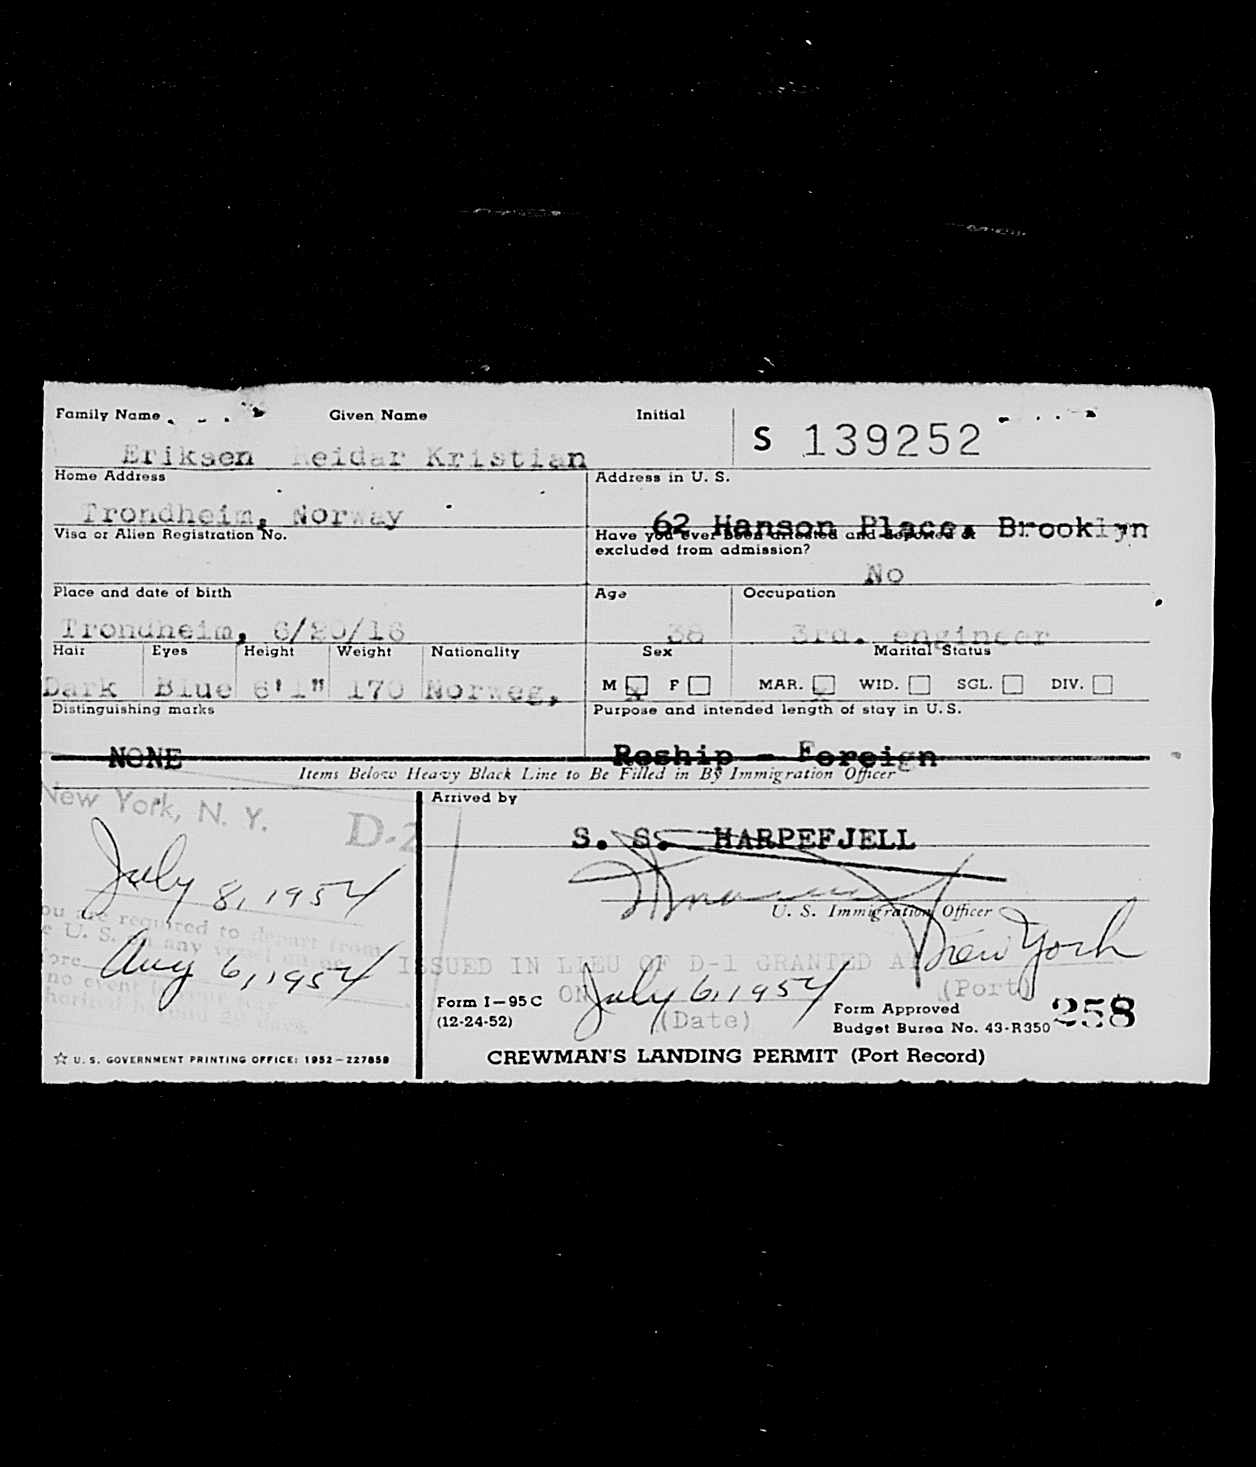 Family Name Given Name Initial
S 139252
Eriksen Reidar Kristian
Home Address Address in U. S.
Trondheim, Norway 62 Hanson Place, Brooklyn
Visa or Alien Registration No. Have you ever been arrested and deported or
excluded from admission?
No
Place and date of birth Age Occupation
Trondheim, 6/20/16 38 3rd. engineer
Hair Eyes Height Weight Nationality Sex Marital Status
Dark Blue 6'1" 170 Norweg. M x F MAR. x WID. SGL. DIV.
Distinguishing marks Purpose and intended length of stay in U.S.
NONE Reship - Foreign
Items Below Heavy Black Line to Be Filled in By Immigration Officer
New York, N. Y. D-2
Arrived by
S. S. HARPEFJELL
July 8, 1954
U. S. Immigration Officer
you are required to depart from
e U. S. on any vessel on
ore Aug 6, 1954
no event
beyond 29 days
ISSUED IN LIEU OF D-1 GRANTED AT New York
(Port)
ON July 6, 1954
(Date)
Form I-95C
(12-24-52)
Form Approved
Budget Burea No. 43-R350
258
☆ U. S. GOVERNMENT PRINTING OFFICE: 1952-227859
CREWMAN'S LANDING PERMIT (Port Record)